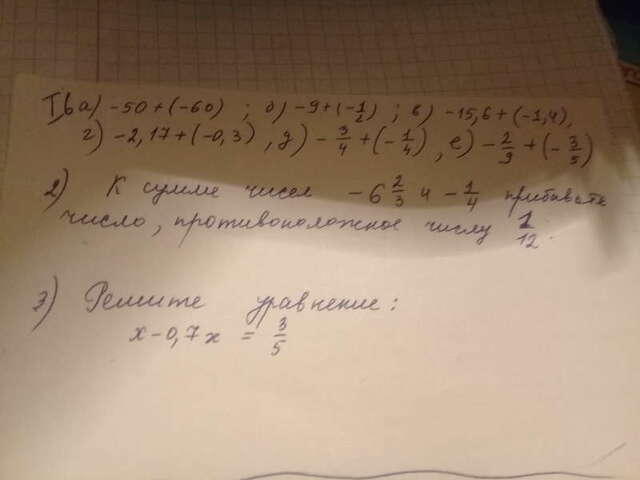 I в а) -50+(-60) ; б) -9+(-1/2) ; в) -15,6+(-1,4),
г) -2,17+(-0,3) , д) -3/4+(-1/4) , е) -2/9+(-3/5)
2) К сумме чисел -6 2/3 и -1/4 прибавить
число, противоположное числу 1/12.
3) Решите уравнение:
x-0,7x = 3/5